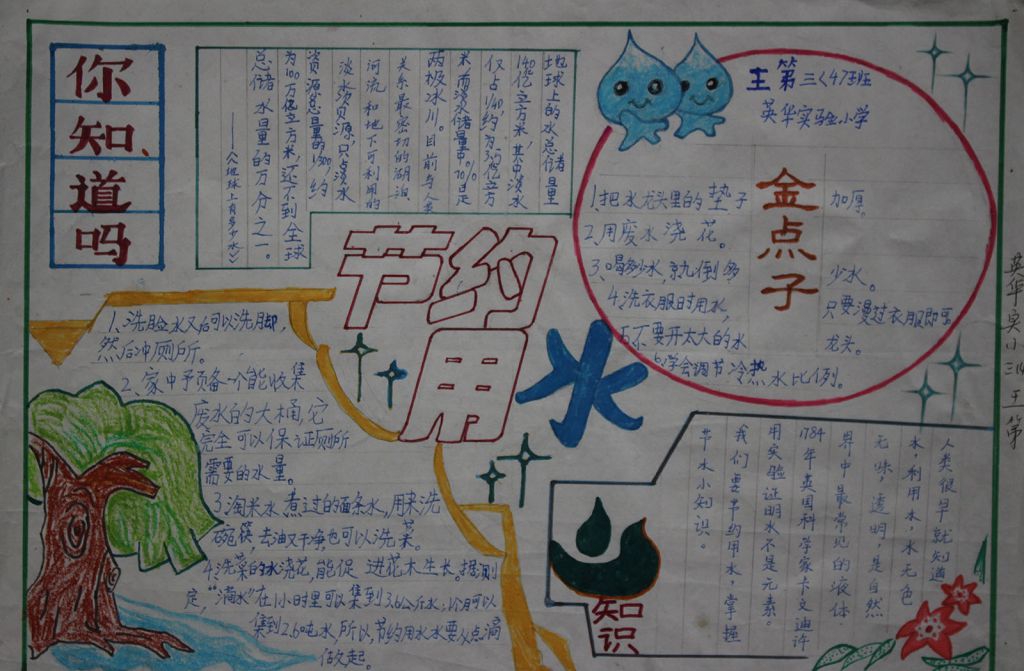 你
知
道
吗
地球上的水总储量
140亿立方米，其中淡水
仅占1/40，约为3.5亿立方
米，而淡水储量中70%是
两极冰川。目前与人类
关系最密切的湖泊、
河流和地下可利用的
淡水资源，只占淡水
资源总量的1/300，约
为100万亿立方米，还不到全球
总储水量的万分之一。
——《地球上有多少水》
节约
用水
王第 三〈4〉班
英华实验小学
金点子
1、把水龙头里的垫子加厚。
2、用废水浇花。
3、喝多少水，就倒多少水。
4、洗衣服时用水，只要漫过衣服即可
5、不要开太大的水龙头。
6、学会调节冷热水比例。
1、洗脸水又后可以洗脚，
然后冲厕所。
2、家中予预备一个能收集
废水的大桶，它
完全可以保证厕所
需要的水量。
3、淘米水、煮过的面条水，用来洗
碗筷，去油又干净，也可以洗菜。
4、洗菜的水浇花，能促进花木生长。据测
定，“滴水”在1小时里可以集到3.6公斤水；1个月可以
集到2.6吨水，所以，节约用水水要从点滴
做起。
知
识
人类很早就知道
水，利用水，水无色
无味，透明，是自然
界中最常见的液体
1784年英国科学家卡文迪许
用实验证明水不是元素。
我们要节约用水，掌握
节水小知识。
英华实小三(4) 王第